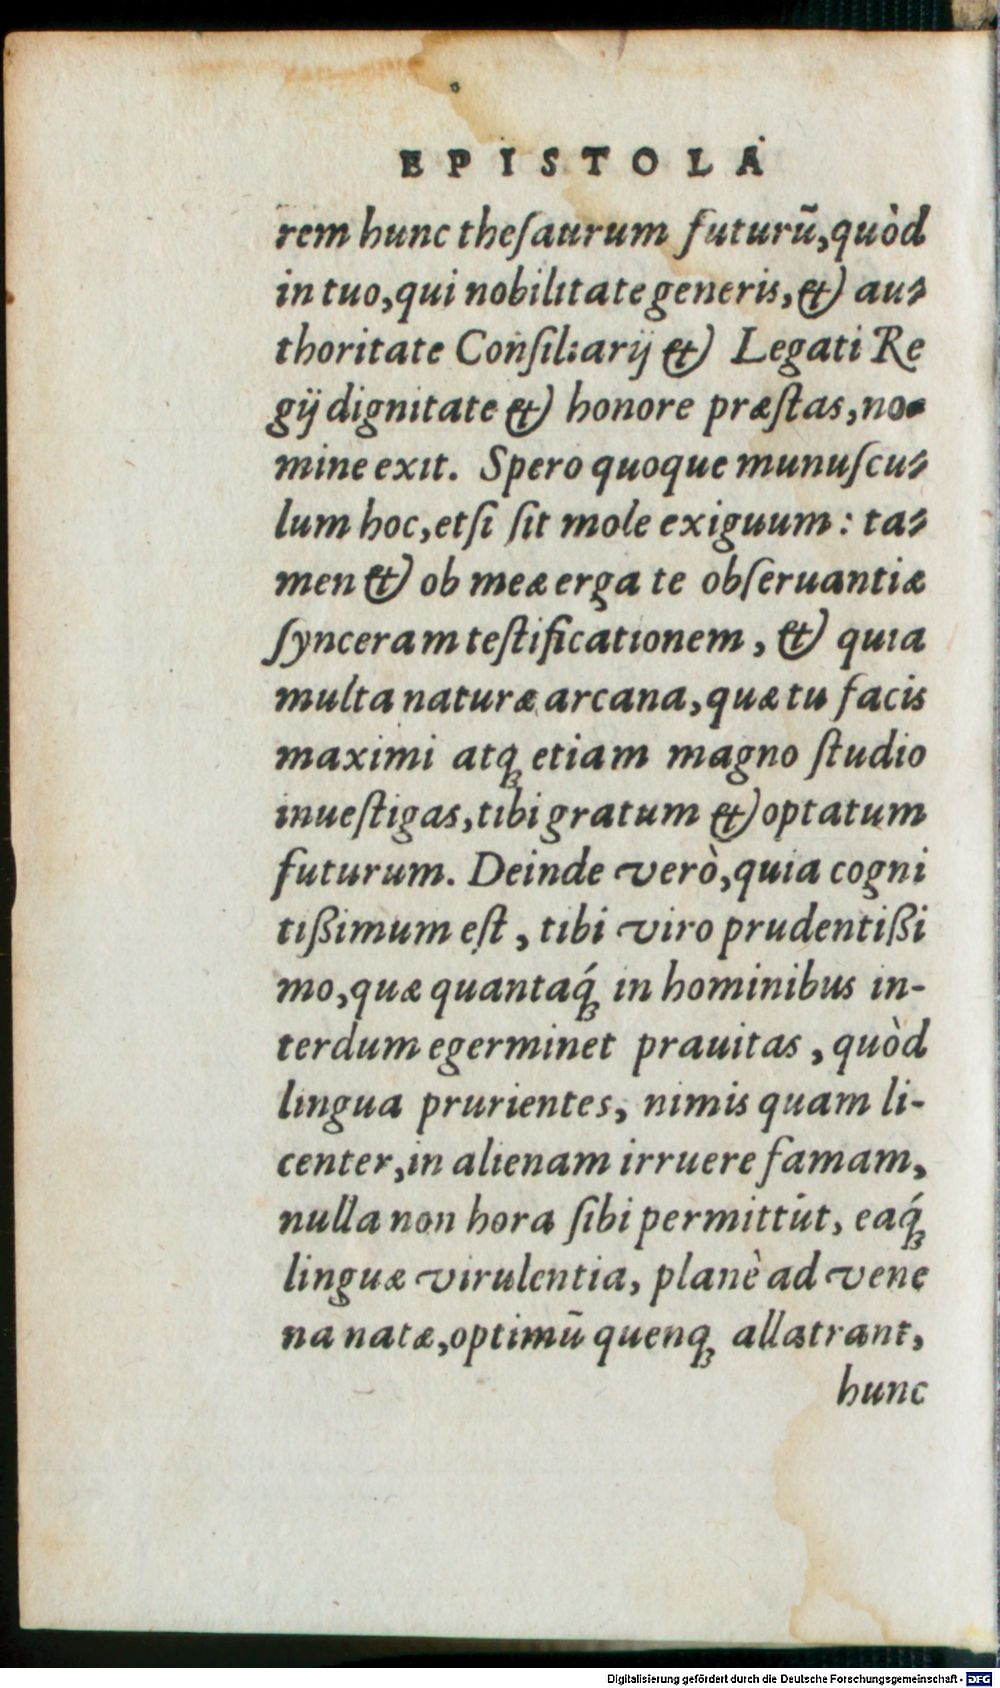 EPISTOLA
rem hunc theſaurum futurũ, quòd
in tuo, qui nobilitate generis, & au-
thoritate Conſiliarij & Legati Re
gij dignitate & honore præſtas, no-
mine exit. Spero quoque munuſcu-
lum hoc, etſi ſit mole exiguum: ta-
men & ob meæ erga te obſeruantiæ
ſynceram teſtificationem, & quia
multa naturæ arcana, quæ tu facis
maximi atq̃ etiam magno ſtudio
inueſtigas, tibi gratum & optatum
futurum. Deinde verò, quia cogni
tißimum eſt, tibi viro prudentißi
mo, quæ quantaq́ in hominibus in-
terdum egerminet prauitas, quòd
lingua prurientes, nimis quam li-
center, in alienam irruere famam,
nulla non hora ſibi permittũt, eaq́
linguæ virulentia, planè ad vene
na natæ, optimũ quenq̃ allatrant,
hunc
Digitalisierung gefördert durch die Deutsche Forschungsgemeinschaft - DFG